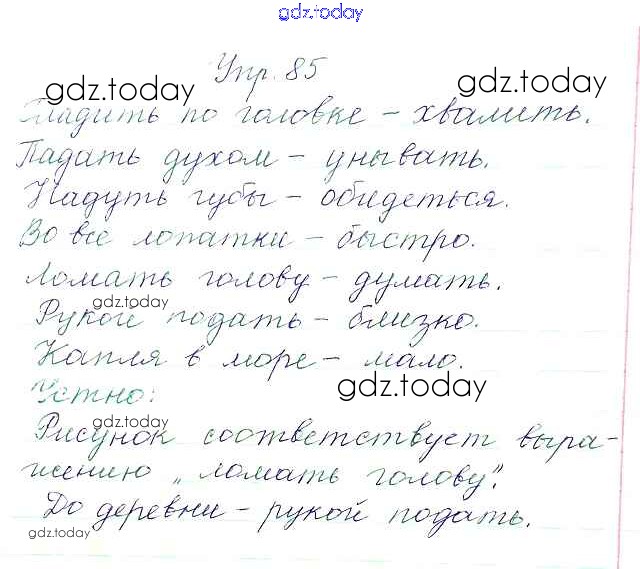 gdz.today
Упр. 85
gdz.today gdz.today
Гладить по головке – хвалить.
Падать духом – унывать.
Надуть губы – обидеться.
Во все лопатки – быстро.
Ломать голову – думать.
gdz.today
Рукой подать – близко.
Капля в море – мало.
Устно:
gdz.today
gdz.today
Рисунок соответствует выра-
жению „ломать голову".
До деревни – рукой подать.
gdz.today